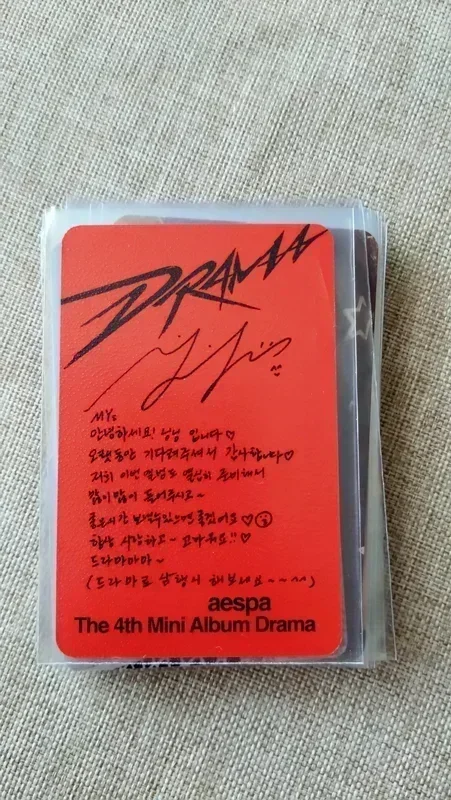 DRAMA
MY:
안녕하세요! 닝닝 입니다♡
오랫동안 기다려주셔서 감사합니다♡
저희 이번 앨범도 열심히 준비해서
많이많이 들어주시고~
좋은시간 보낼수있으면 좋겠어요♡☺
항상 사랑하고~ 고마워요!!♡
드라마마마~
(드라마로 삼행시 해보세요~~^^)
aespa
The 4th Mini Album Drama